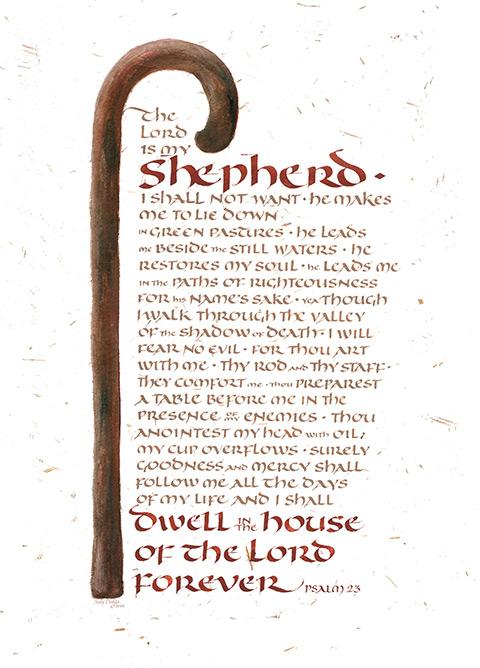 The
Lord
is my
Shepherd ·
I shall not want · he makes
me to lie down
in green pastures · he leads
me beside the still waters · he
restores my soul · he leads me
in the paths of righteousness
for his name's sake · yea though
I walk through the valley
of the shadow of death · I will
fear no evil · for thou art
with me · thy rod and thy staff ·
they comfort me · thou preparest
a table before me in the
presence of my enemies · thou
anointest my head with oil;
my cup overflows · surely
goodness and mercy shall
follow me all the days
of my life and I shall
dwell in the house
of the Lord
forever
Psalm 23